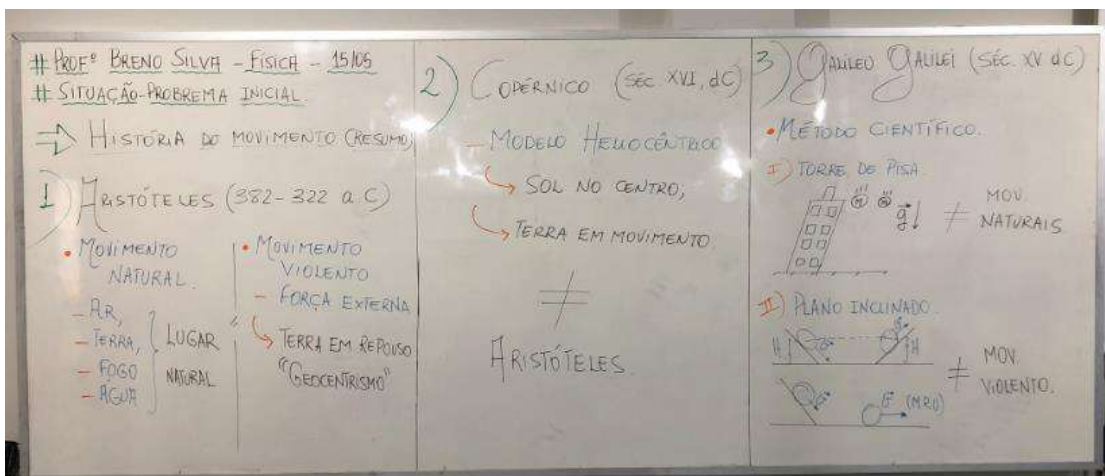 # PROFº BRENO SILVA - FÍSICA - 15/05
# SITUAÇÃO-PROBREMA INICIAL.
⇒ HISTÓRIA DO MOVIMENTO (RESUMO)
1) ARISTÓTELES (382-322 a.C)
• MOVIMENTO
NATURAL.
- AR,
- TERRA,
- FOGO
- ÁGUA
LUGAR
NATURAL
• MOVIMENTO
VIOLENTO
- FORÇA EXTERNA
↳ TERRA EM REPOUSO
"GEOCENTRISMO"
2) COPÉRNICO (SÉC. XVI, dC)
- MODELO HELIOCÊNTRICO
↳ SOL NO CENTRO;
↳ TERRA EM MOVIMENTO.
≠
ARISTÓTELES.
3) GALILEU GALILEI (SÉC. XV dC)
• MÉTODO CIENTÍFICO.
I) TORRE DE PISA.
M m g ≠ MOV.
NATURAIS
II) PLANO INCLINADO.
H H
≠ MOV.
VIOLENTO.
(MRU)